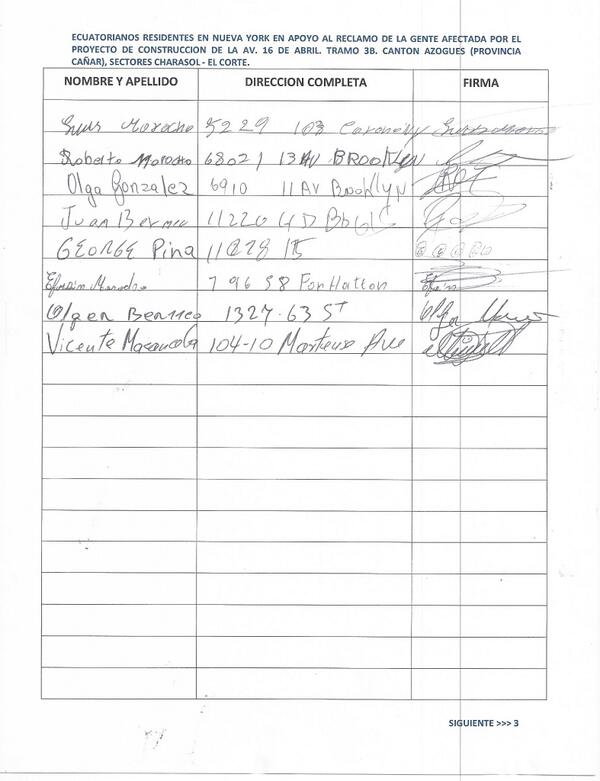 ECUATORIANOS RESIDENTES EN NUEVA YORK EN APOYO AL RECLAMO DE LA GENTE AFECTADA POR EL
PROYECTO DE CONSTRUCCION DE LA AV. 16 DE ABRIL. TRAMO 3B. CANTON AZOGUES (PROVINCIA
CAÑAR), SECTORES CHARASOL - EL CORTE.
NOMBRE Y APELLIDO DIRECCION COMPLETA FIRMA
Luis Morocho 5229 103
Roberto Morocho 6802 / 13 AV BROOKLYN
Olga Gonzalez 6910 11 AV Brooklyn
Juan 11220
GEORGE Pina
Efrain
Olger 1327-63 ST
Vicente 104-10 Ave
SIGUIENTE >>> 3